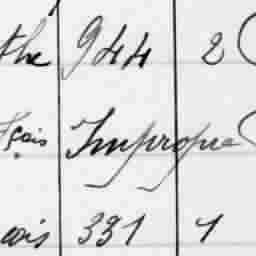 the 944 2
çais Impropre
ois 331 1